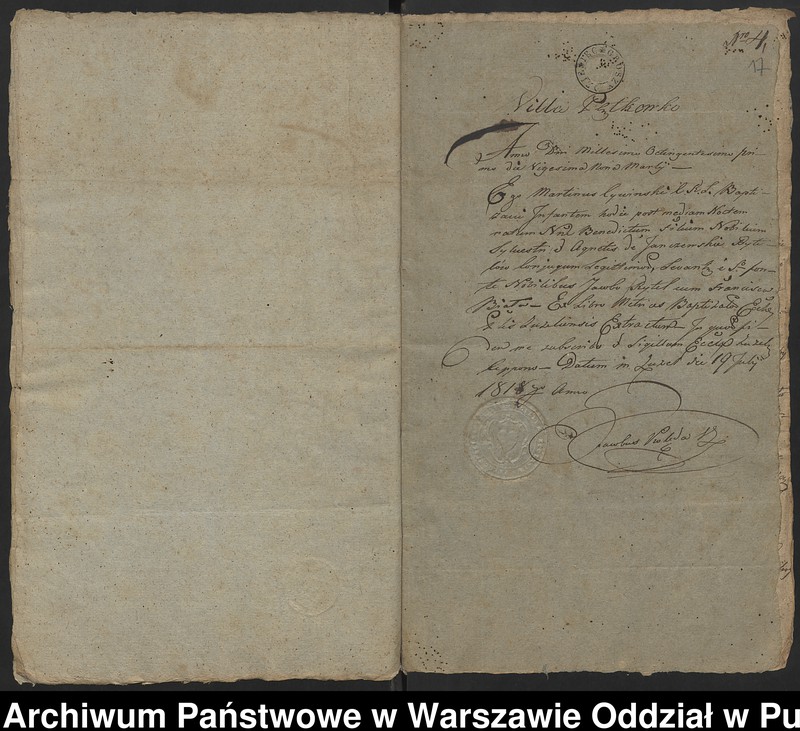 Nro 4,
17
Villa Pętkowko
Anno Dni Millesimo Octengentesimo pri-
mo die Vigesima Nona Martij —
Ego Martinus Cywinski C. R. L. Bapti-
savi Infantem hodie post mediam Noctem
natum Nne Benedictum Filium Nobilium
Sylvestri & Agnetis de
conjugum Legittimor, Levante e S. fon-
te Nobilibus Jacobo Pytel cum Francisca
Biała — Ex Libro Metrices Baptizator Eccle
Extractum In quor fi-
dem me subscribo & Sigillum
appono — Datum in die 19 Julij
Anno
Jacobus
Archiwum Państwowe w Warszawie Oddział w Pu